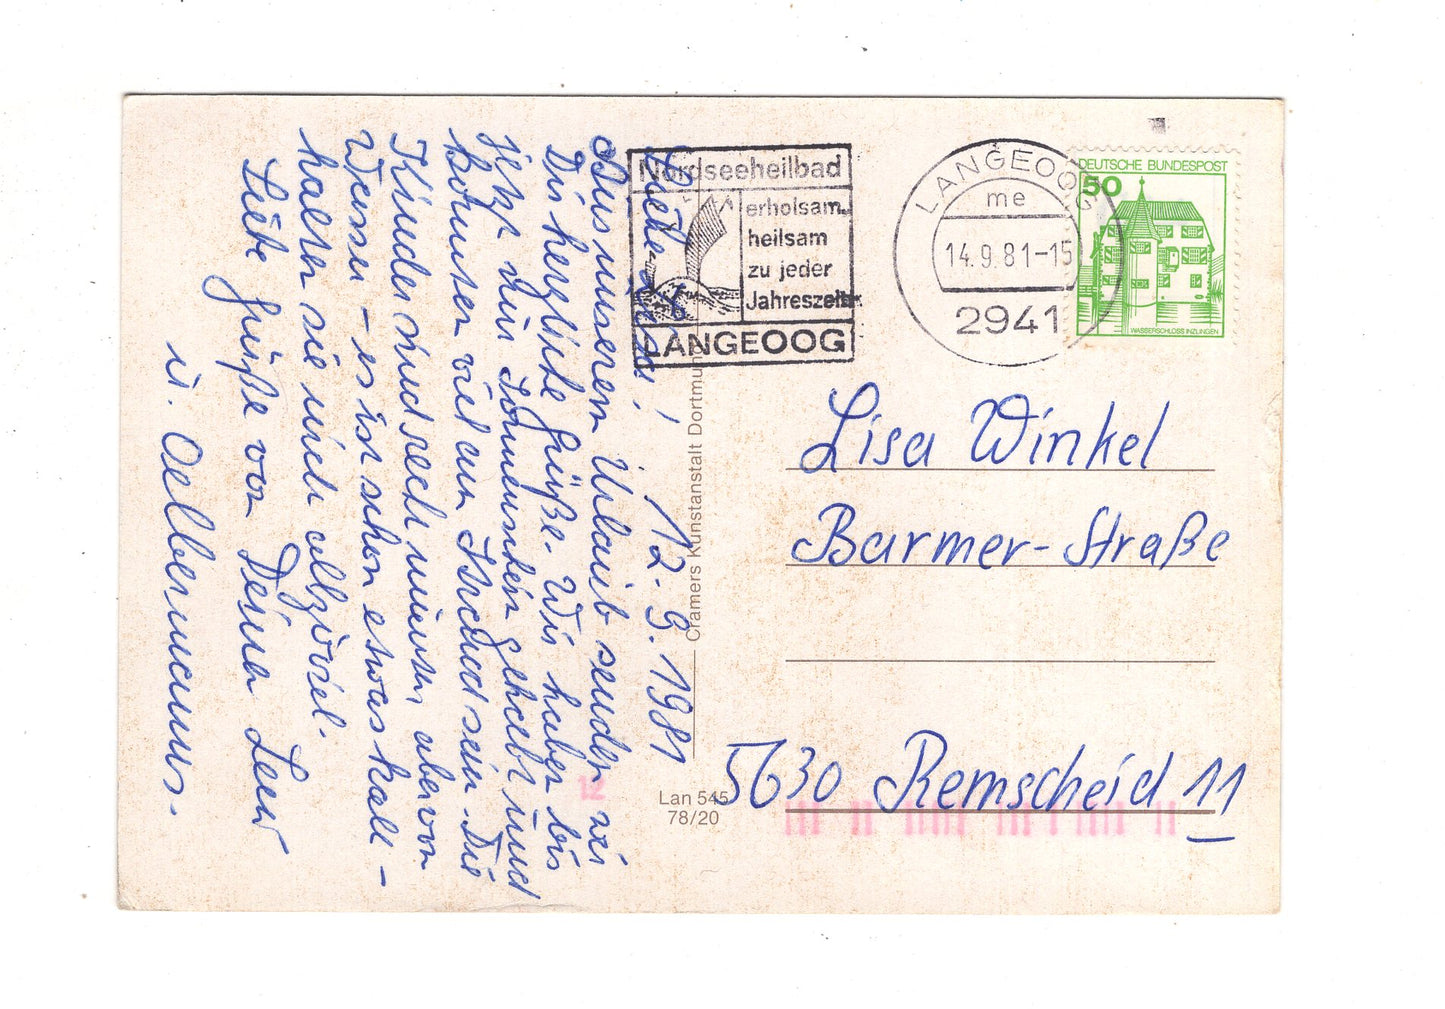 Liebe Lisa! 12.9.1981
Aus unserem Urlaub senden wir
Dir herzliche Grüße. Wir haben bis
jetzt nur Sonnenschein gehabt und
konnten viel am Strand sein. Die
Kinder sind sech unserem aber von
Wasser - es ist schon etwas kalt -
halten sie nich allzuviel.
Liebe Grüße von Deiner
u. Oelbermanns.
Nordseeheilbad
erholsam
heilsam
zu jeder
Jahreszeit
LANGEOOG
LANGEOOG
me
14.9.81-15
2941
DEUTSCHE BUNDESPOST
50
WASSERSCHLOSS INZLINGEN
Cramers Kunstanstalt Dortmund
Lan 545
78/20
Lisa Winkel
Barmer-Straße
5630 Remscheid 11